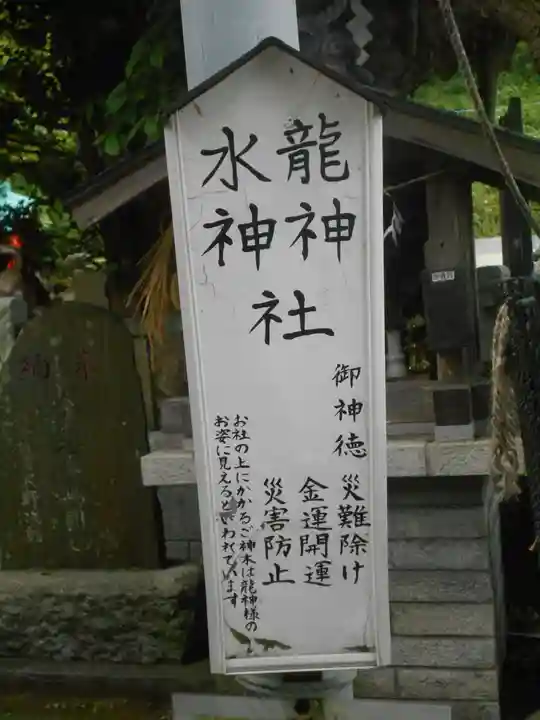 龍神
水神
社
御神徳
災難除け
金運開運
災害防止
お社の上にかかるご神木は龍神様の
お姿に見えるといわれています